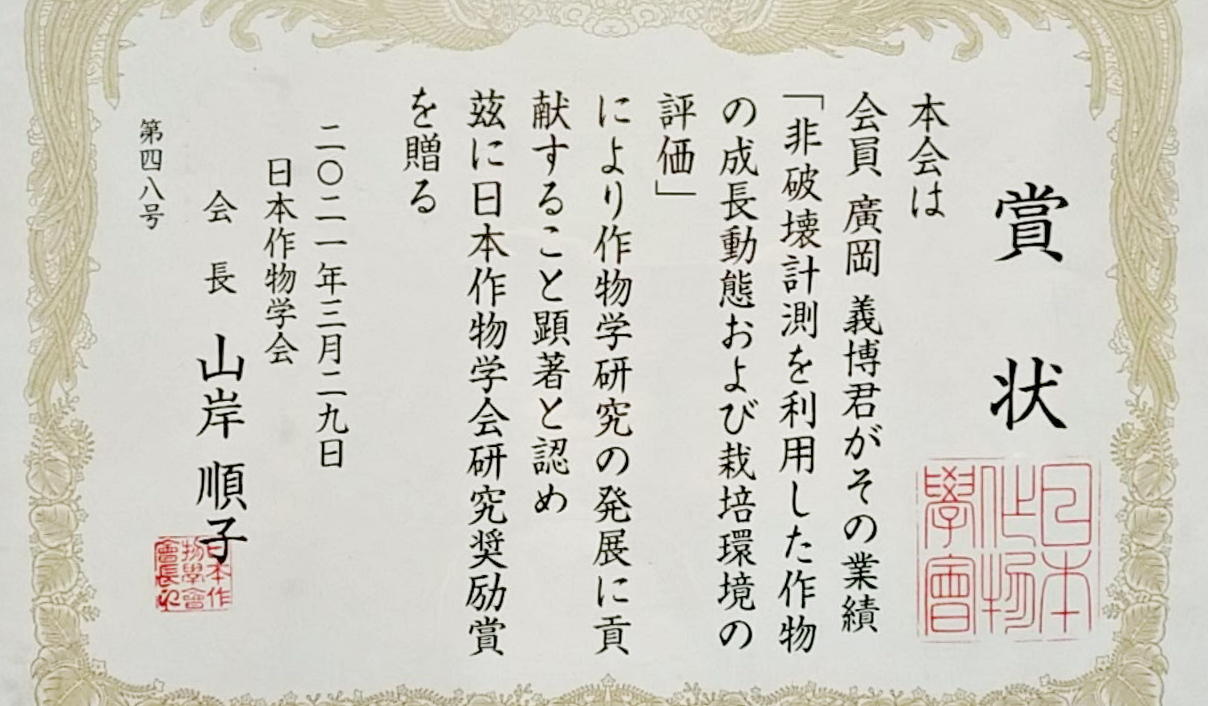 賞状
本会は
会員 廣岡 義博君がその業績
「非破壊計測を利用した作物
の成長動態および栽培環境の
評価」
により作物学研究の発展に貢
献すること顕著と認め
茲に日本作物学会研究奨励賞
を贈る
二〇二一年三月二九日
日本作物学会
会長 山岸 順子
第四八号
日本
作物
學會
日本作
物學會
會長之